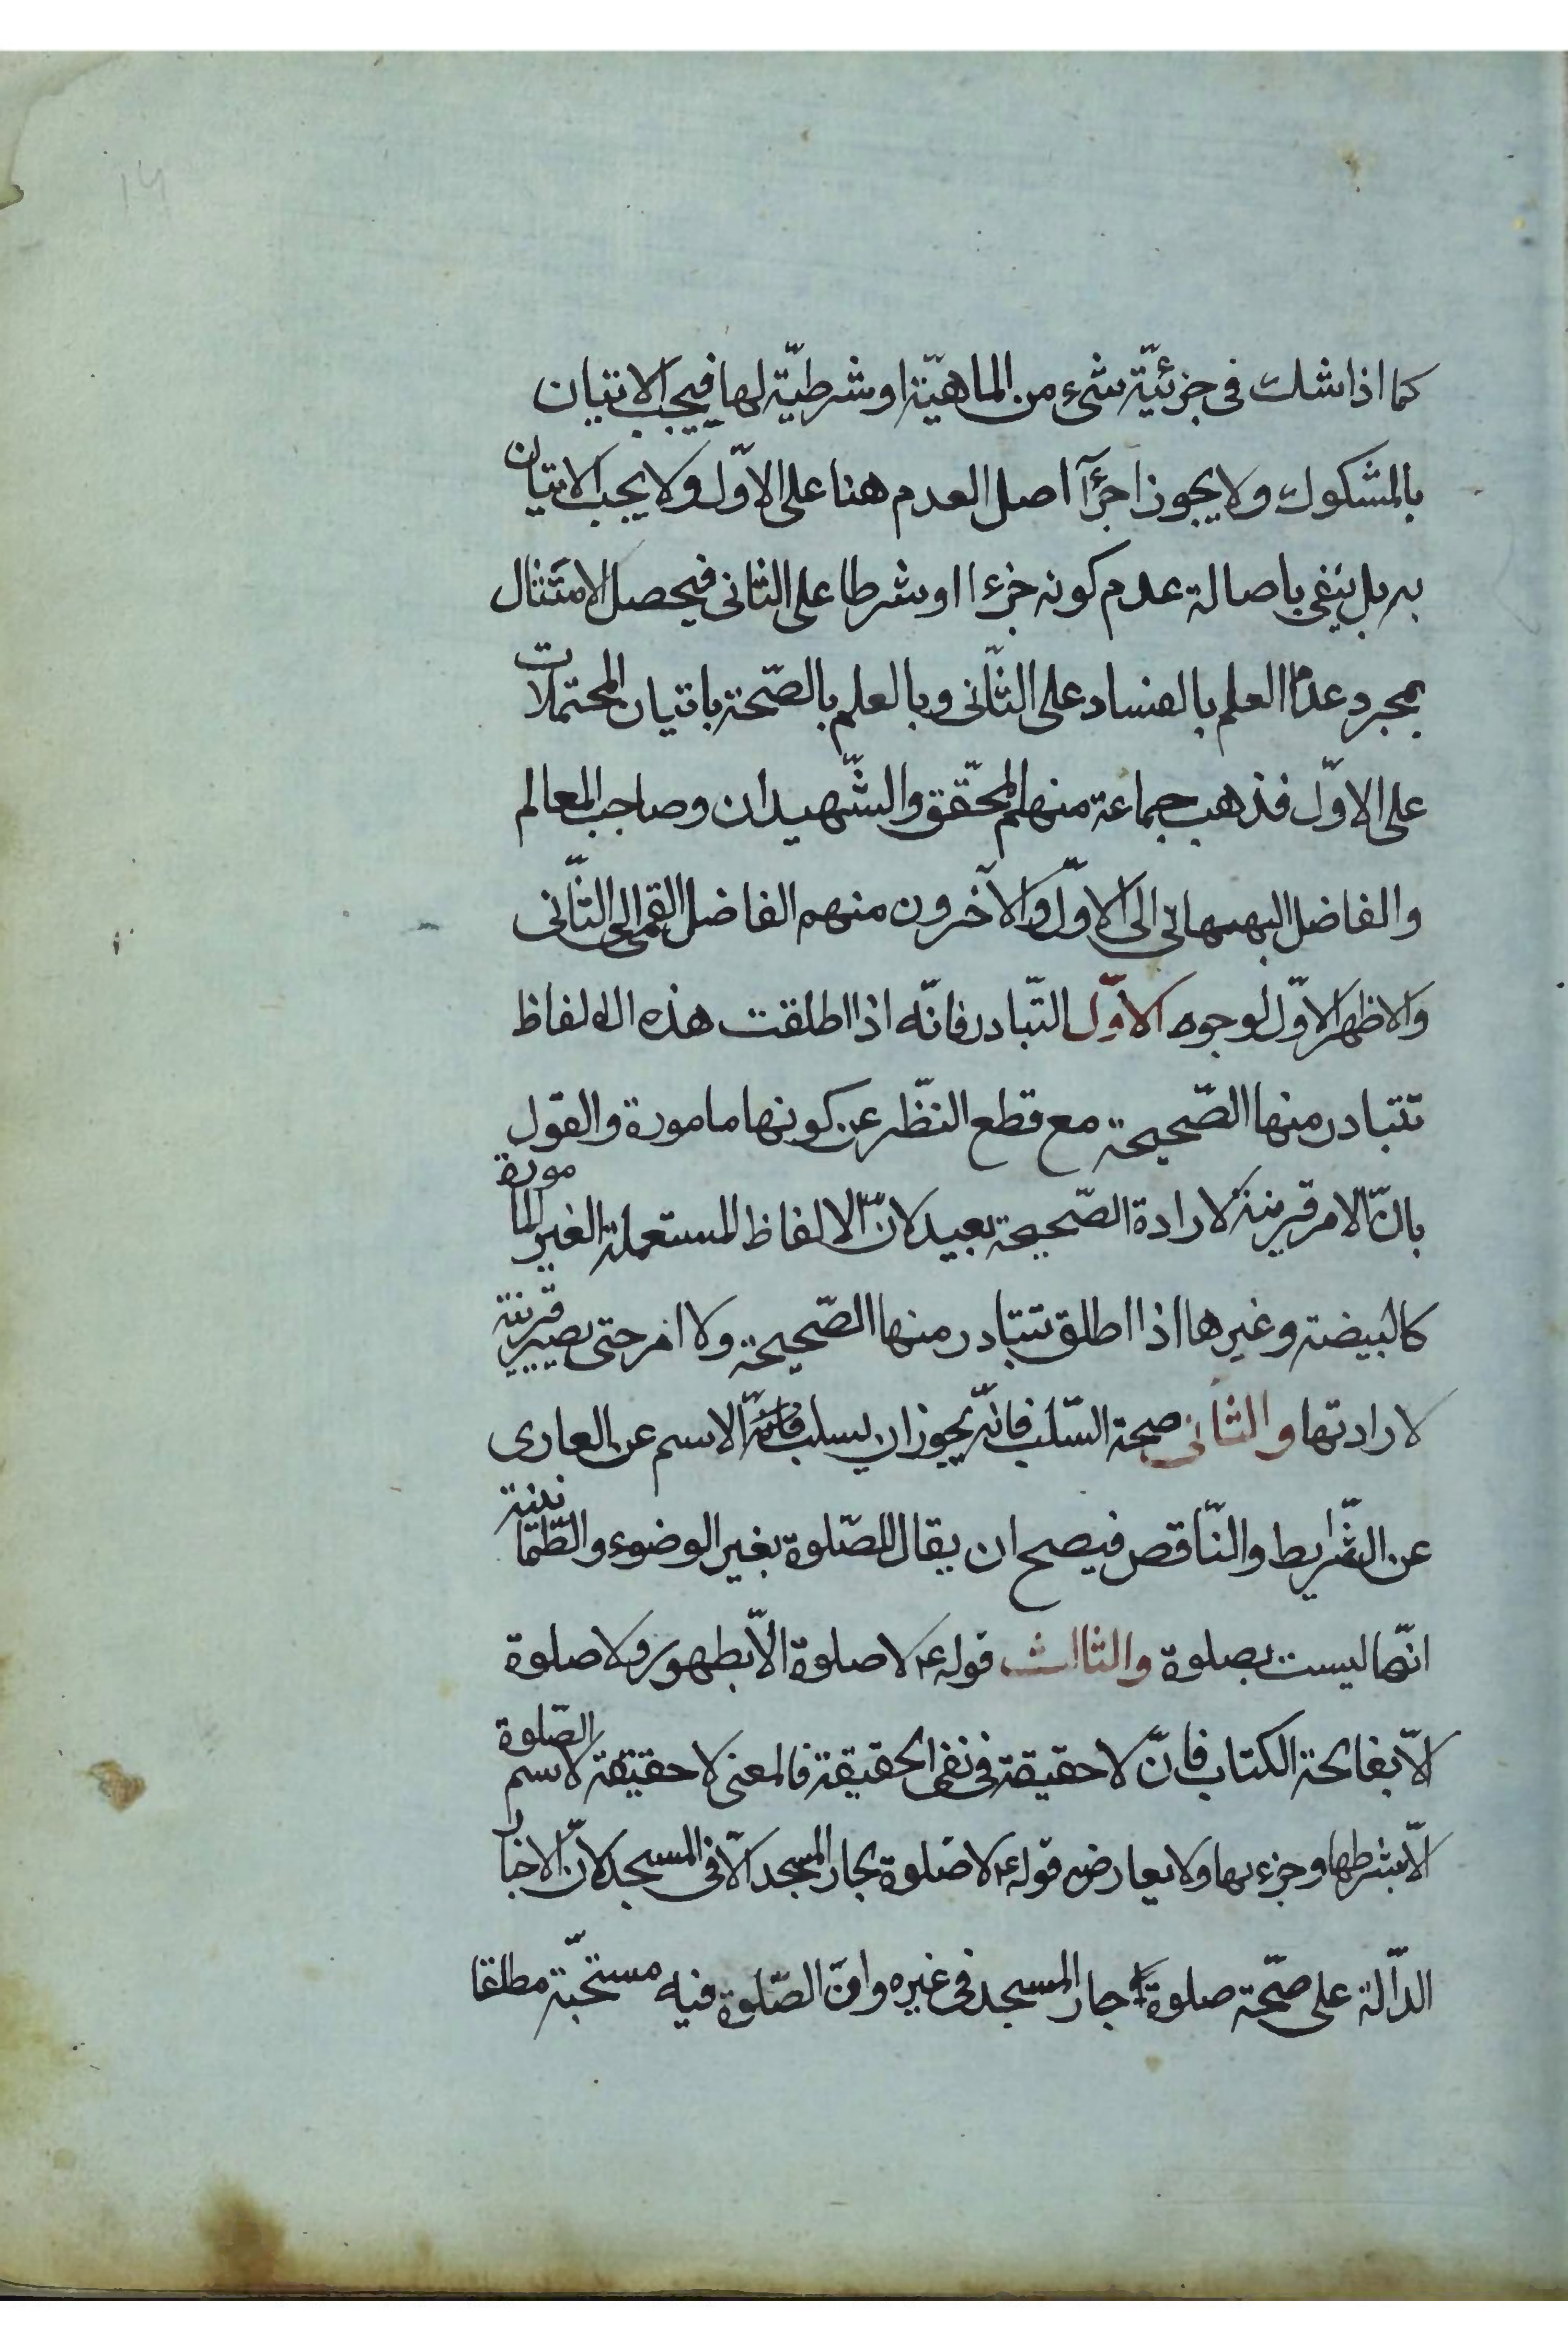 ١٣
كما اذا شك فى جزئيّة شىء من الماهيّة او شرطيّة لها فيجب الاتيان
بالمشكوك ولا يجوز اجرآء اصل العدم هنا على الاوّل ولا يجب الاتيان
به بل ينفى باصالة عدم كونه جزءا او شرطا على الثانى فيحصل الامتثال
بمجرد عدم العلم بالفساد على الثّانى وبالعلم بالصّحة باتيان المحتملات
على الاوّل فذهب جماعة منهم المحقّق والشّهيدان وصاحب المعالم
والفاضل البهبهانى الى الاوّل والآخرون منهم الفاضل القمى الى الثّانى
والاظهر الاوّل لوجوه الاوّل التّبادر فانّه اذا اطلقت هذه الالفاظ
تتبادر منها الصّحيحة مع قطع النّظر عن كونها مامورة والقول
بانّ الامر قرينة لارادة الصّحيحة بعيد لانّ الالفاظ المستعملة الغير المامورة
كالبيضة وغيرها اذا اطلق تتبادر منها الصّحيحة ولا امر حتى يصير قرينة
لارادتها والثانى صحة السّلب فانّه يجوز ان يسلب الاسم عن العارى
عن الشّرايط والنّاقص فيصح ان يقال للصّلوة بغير الوضوء والطّمانينة
انّها ليست بصلوة والثالث قوله ع لا صلوة الّا بطهور ولا صلوة
الّا بفاتحة الكتاب فانّ لا حقيقة فى نفى الحقيقة فالمعنى لا حقيقة لاسم الصّلوة
الّا بشرطها وجزءها ولا يعارض قوله ع لا صلوة لجار المسجد الّا فى المسجد لانّ الاخبار
الدّالة على صحّة صلوة جار المسجد فى غيره وانّ الصّلوة فيه مستحبّة مطلقا